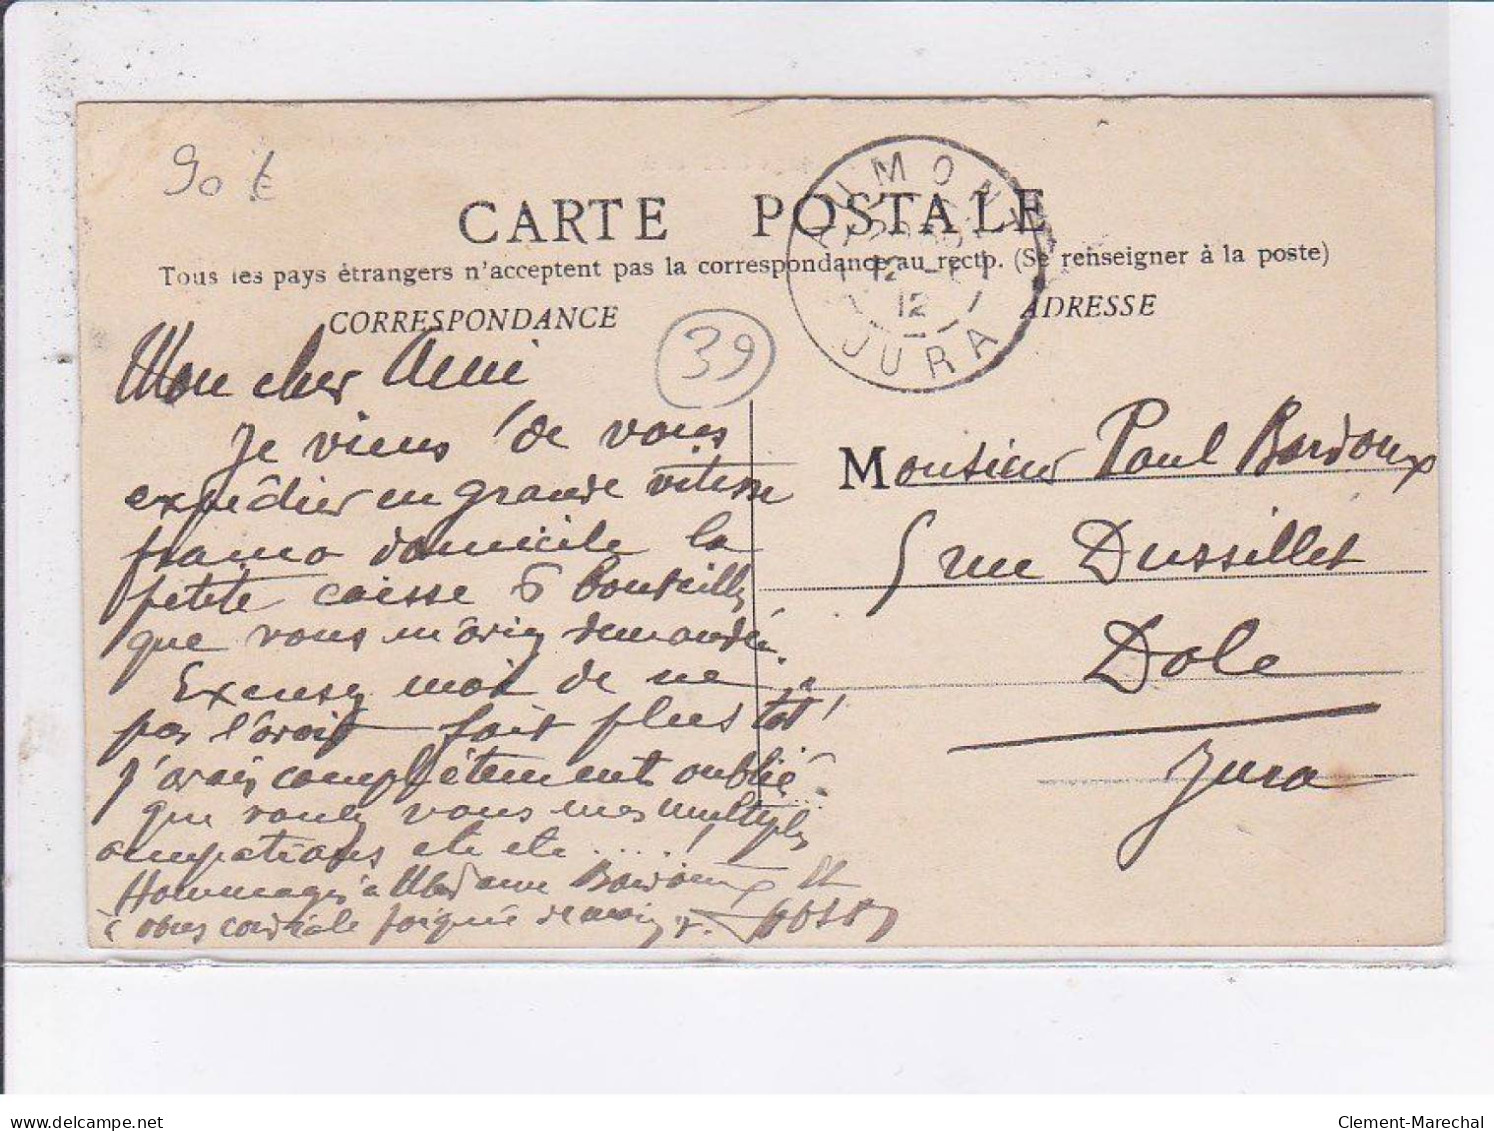 90 €
CARTE POSTALE
Tous les pays étrangers n'acceptent pas la correspondance au recto. (Se renseigner à la poste)
CORRESPONDANCE
ADRESSE
39
12
JURA
Mon cher Ami
Je viens de vous
expédier en grande vitesse
franco domicile la
petite caisse 6 bouteilles
que vous m'aviez demandée.
Excusez moi de ne
pas l'avoir fait plus tôt!
j'avais complètement oublié
que voulez vous mes multiples
occupations etc etc .....!
Hommages à Madame Bardoux et
à vous cordiale poignée de main
Monsieur Paul Bardoux
5 rue Dussillet
Dole
Jura
delcampe.net
Clement-Marechal